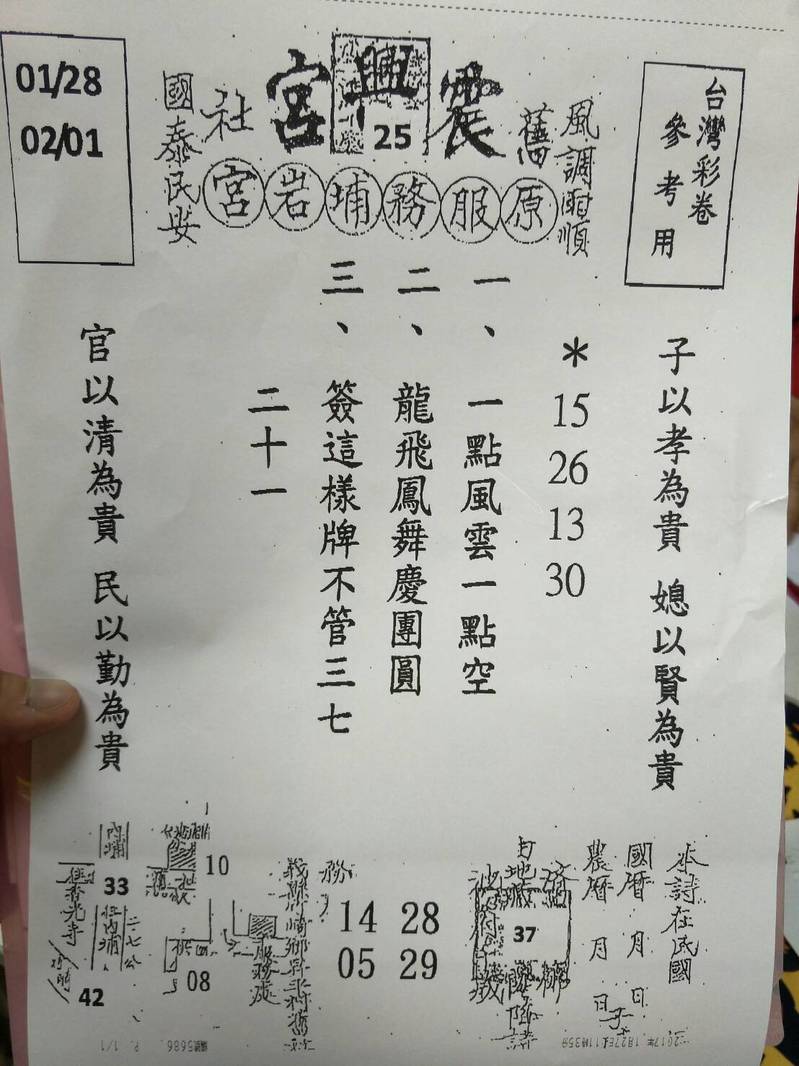 台灣彩卷
參考用
風調雨順
舊
震興宮
25
社
國泰民安
原服務埔岩宮
01/28
02/01
子以孝為貴 媳以賢為貴
＊15 26 13 30
一、一點風雲一點空
二、龍飛鳳舞慶團圓
三、簽這樣牌不管三七
二十一
官以清為貴 民以勤為貴
本詩在民國
國曆 月 日
農曆 月 日
37
務
14 28
05 29
服務處
10
08
內埔
33
往內埔
往香光寺
42